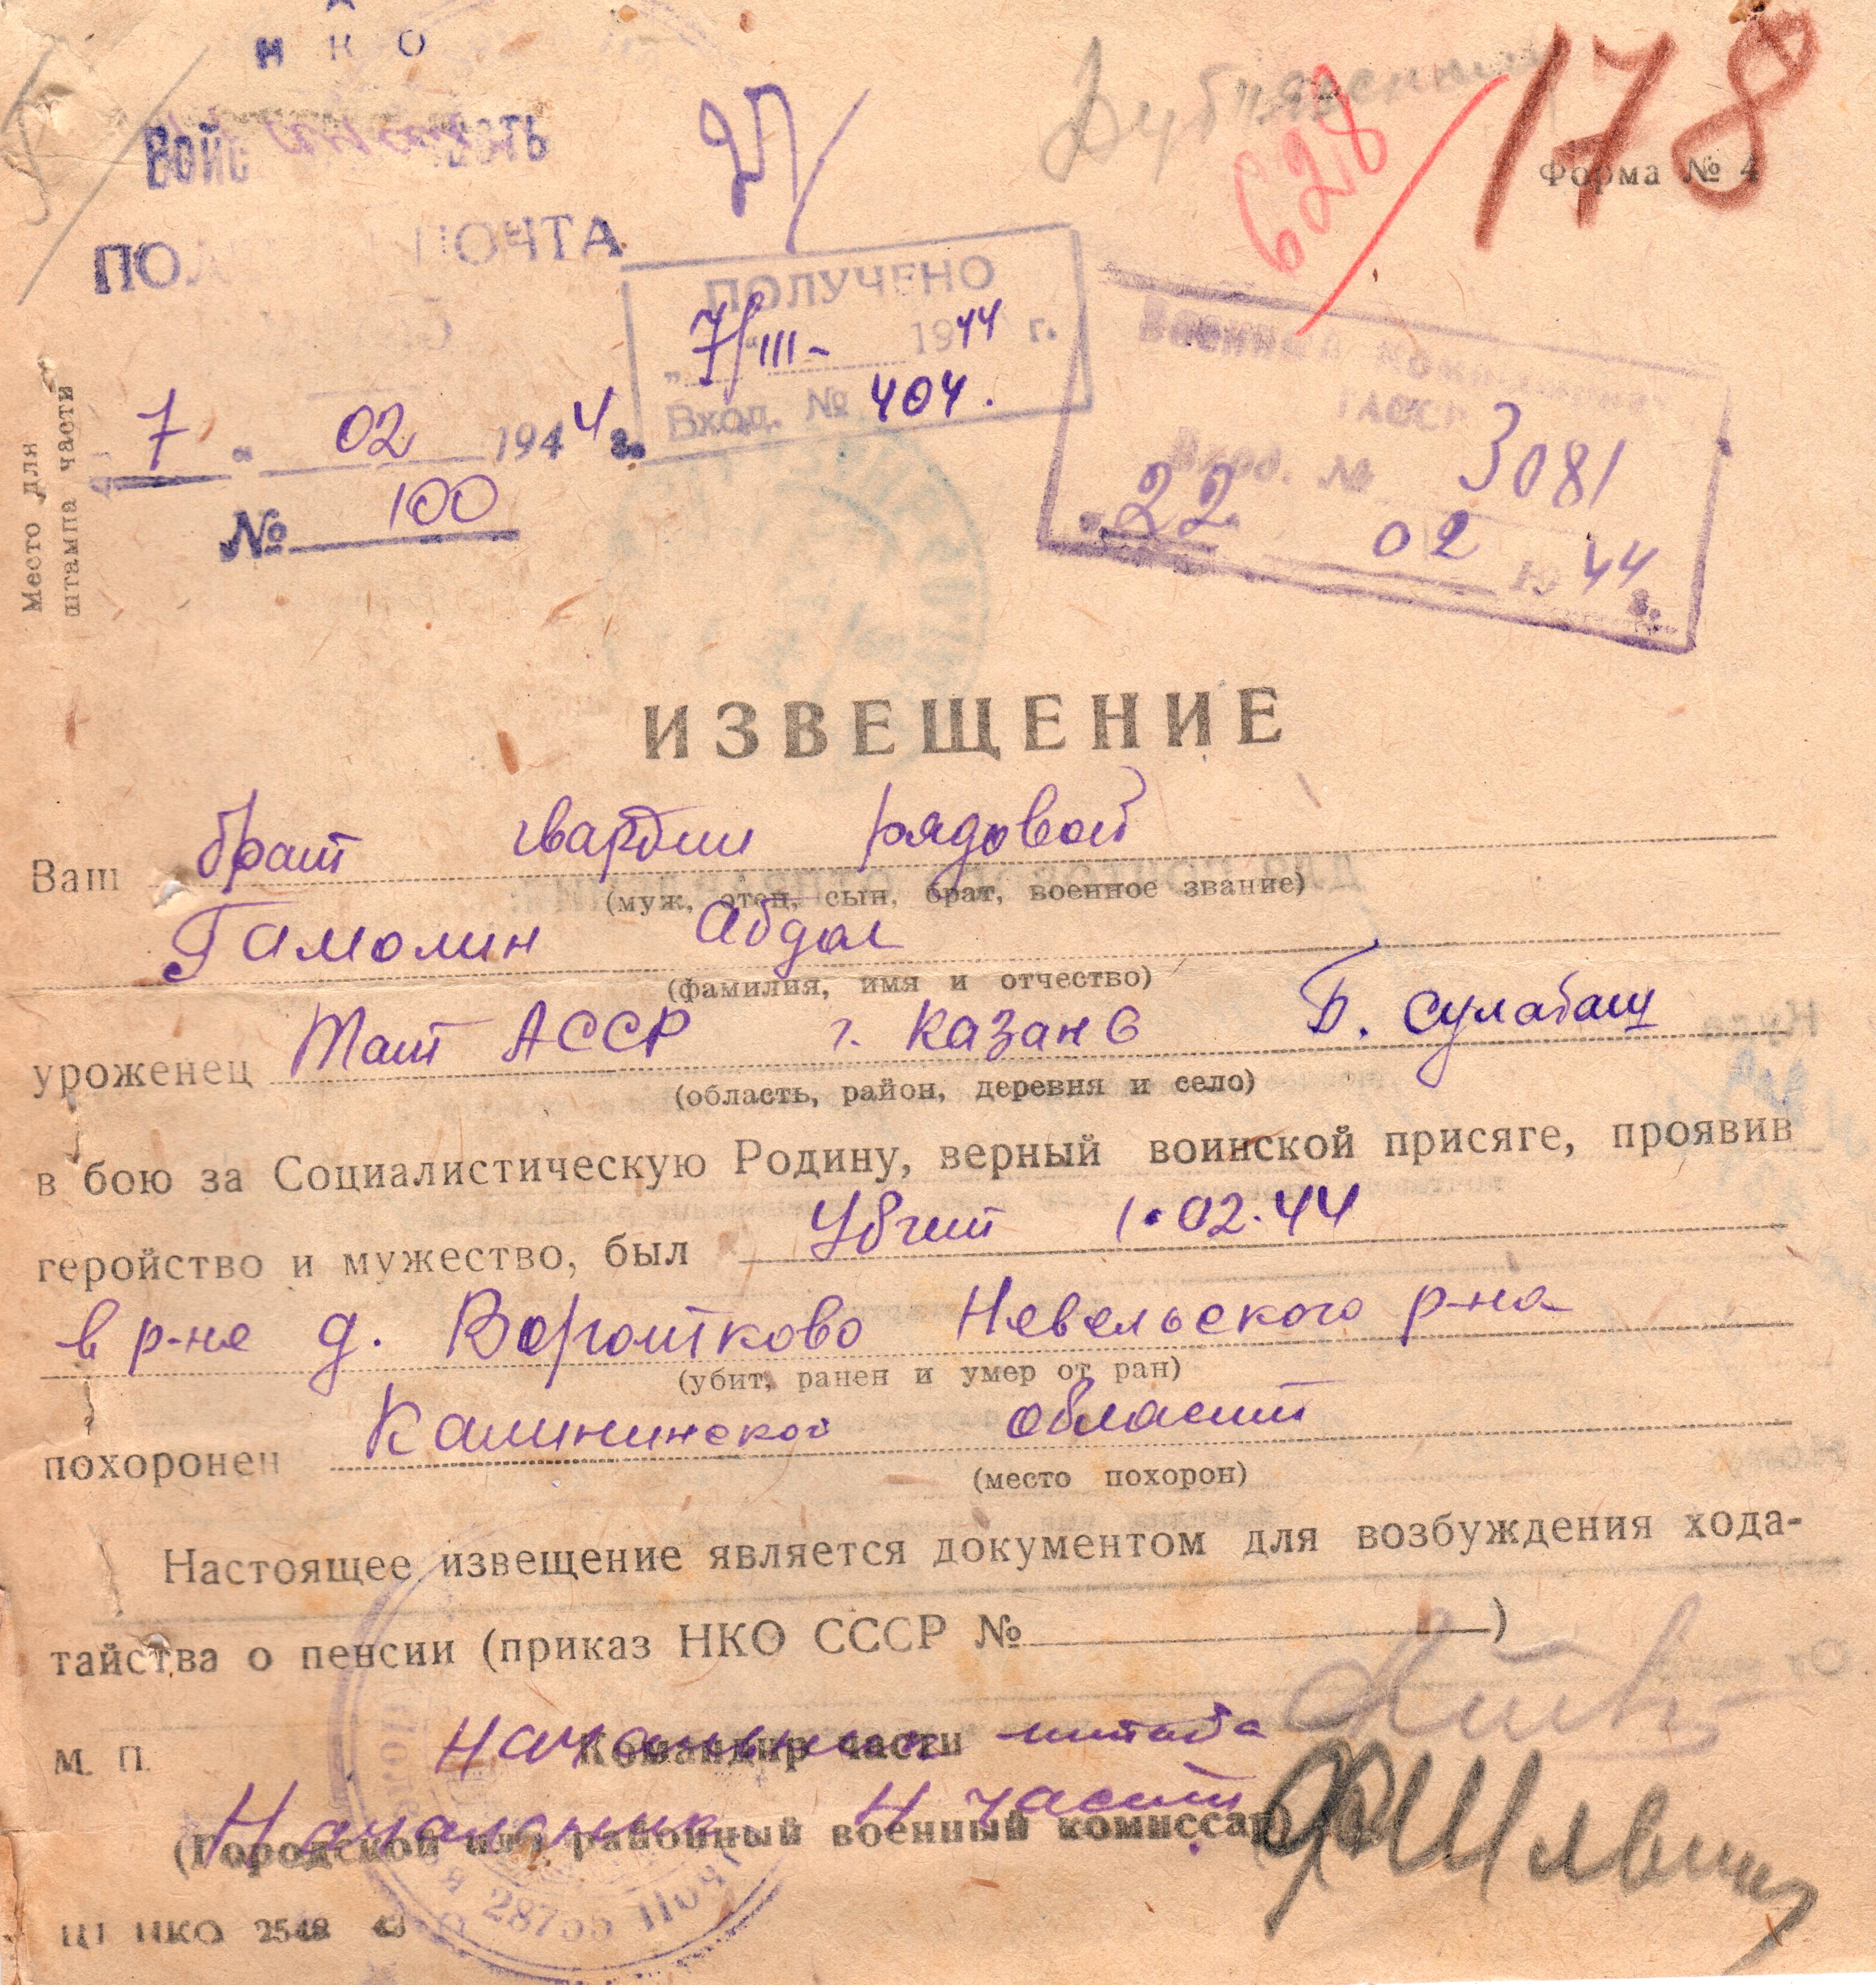 НКО
ПОЧТА
Форма № 4
628
178
ПОЛУЧЕНО
7/III- 1944 г.
Вход. № 404.
Место для
штампа части
7 " 02 1944 г.
№ 100
Вход. № 3081
"22 02 1944 г.
ИЗВЕЩЕНИЕ
Ваш брат гвардии рядовой
(муж, отец, сын, брат, военное звание)
Гамолин Абдул
(фамилия, имя и отчество)
уроженец Тат АССР г. Казань Б. Сулабаш
(область, район, деревня и село)
в бою за Социалистическую Родину, верный воинской присяге, проявив
геройство и мужество, был Убит 1.02.44
в р-не д. Воротково Невельского р-на
(убит, ранен и умер от ран)
похоронен Калининской области
(место похорон)
Настоящее извещение является документом для возбуждения хода-
тайства о пенсии (приказ НКО СССР № )
М. П. Командир части
Начальник штаба
Начальник 4 части
(Городской или районный военный комиссар)
28755
НКО 2548